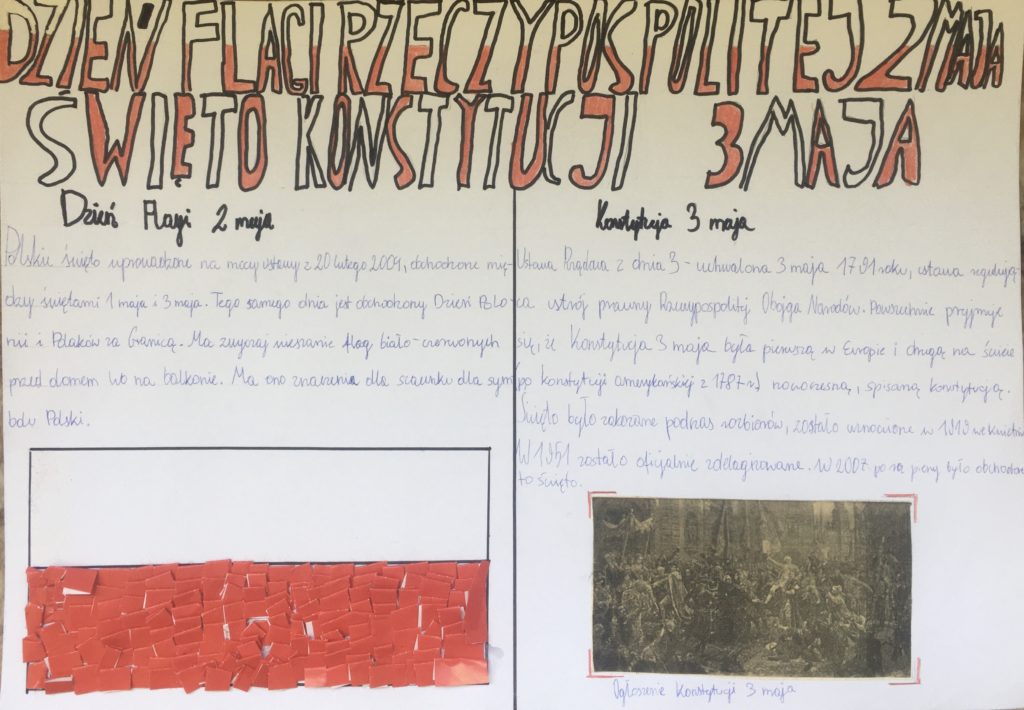 DZIEŃ FLAGI RZECZYPOSPOLITEJ 2 MAJA
ŚWIĘTO KONSTYTUCJI 3 MAJA
Dzień Flagi 2 maja
Polskie święto wprowadzone na mocy ustawy z 20 lutego 2004, obchodzone mię-
dzy świętami 1 maja i 3 maja. Tego samego dnia jest obchodzony Dzień Polo
nii i Polaków za Granicą. Ma zwyczaj wieszanie flag biało-czerwonych
przed domem na balkonie. Ma ono znaczenia dla szacunku dla sym
bolu Polski.
Konstytucja 3 maja
Ustawa Rządowa z dnia 3- uchwalona 3 maja 1791 roku, ustawa regulują-
ca ustrój prawny Obojga Narodów. Powszechnie przyjmuje
się, że Konstytucja 3 maja była pierwszą w Europie i drugą na świecie
(po konstytucji amerykańskiej z 1787 r.) nowoczesną, spisaną konstytucją.
Święto było zakazane podczas rozbiorów, zostało wznowione w 1919
W 1951 zostało oficjalnie W 2007 po raz było
to święto.
Ogłoszenie Konstytucji 3 maja